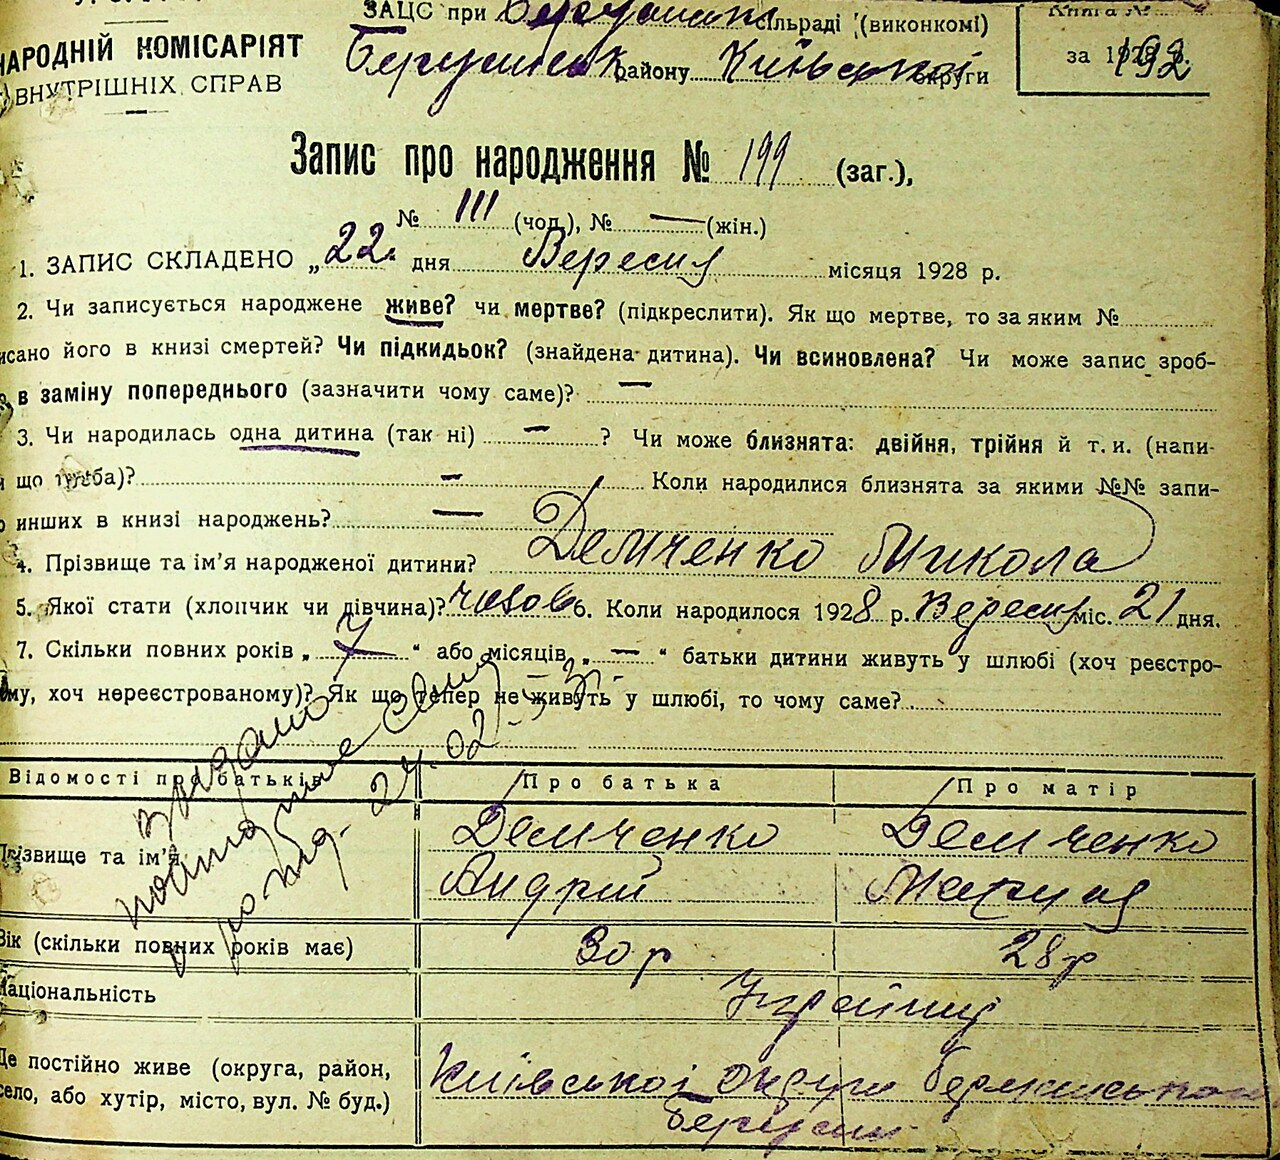 ЗАЦС при сільраді (виконкомі)
НАРОДНІЙ КОМІСАРІЯТ
ВНУТРІШНІХ СПРАВ
району Київської округи
Книга №
за 192 р.
Запис про народження № 199 (заг.),
№ 111 (чол.), № — (жін.)
1. ЗАПИС СКЛАДЕНО „22" дня Вересня місяця 1928 р.
2. Чи записується народжене живе? чи мертве? (підкреслити). Як що мертве, то за яким №
исано його в книзі смертей? Чи підкидьок? (знайдена дитина). Чи всиновлена? Чи може запис зроб-
в заміну попереднього (зазначити чому саме)? —
3. Чи народилась одна дитина (так ні) — ? Чи може близнята: двійня, трійня й т. и. (напи-
що треба)? — Коли народилися близнята за якими №№ запи-
инших в книзі народжень? —
4. Прізвище та ім'я народженої дитини? Демченко Микола
5. Якої стати (хлопчик чи дівчина)? чолов 6. Коли народилося 1928 р. Вересня міс. 21 дня.
7. Скільки повних років „ 7 " або місяців „ — " батьки дитини живуть у шлюбі (хоч реєстро-
ому, хоч нереєстрованому)? Як що тепер не живуть у шлюбі, то чому саме?
Відомості про батьків Про батька Про матір
Прізвище та ім'я Демченко Демченко
Андрій
Вік (скільки повних років має) 30 р 28 р
Національність
Де постійно живе (округа, район, Київської округи
село, або хутір, місто, вул. № буд.)